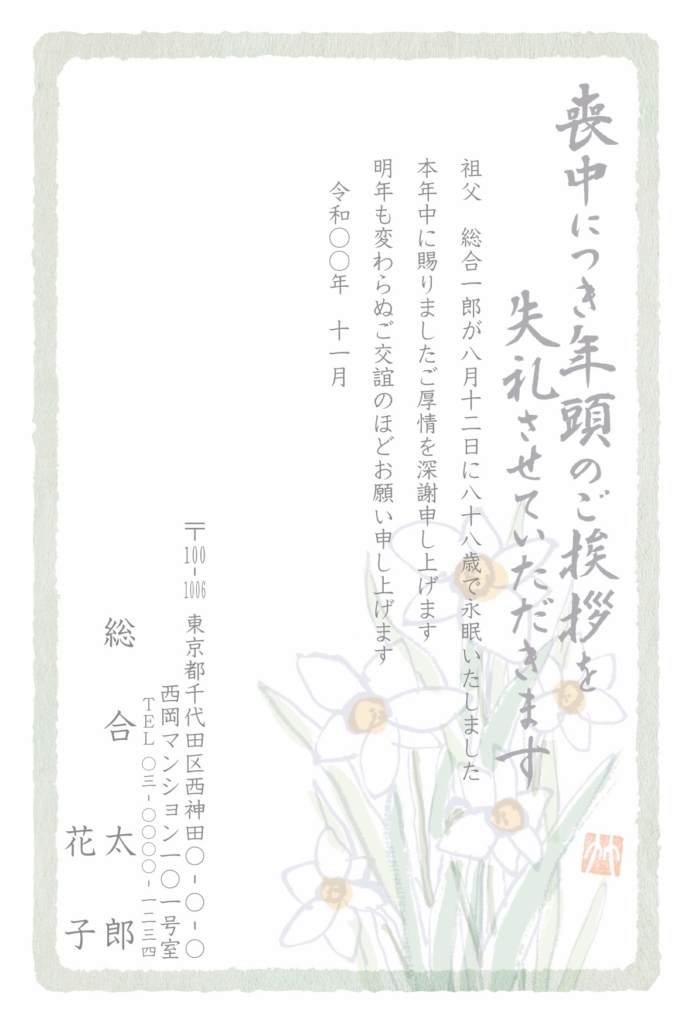 喪中につき年頭のご挨拶を
失礼させていただきます
祖父　総合一郎が八月十二日に八十八歳で永眠いたしました
本年中に賜りましたご厚情を深謝申し上げます
明年も変わらぬご交誼のほどお願い申し上げます
令和〇〇年　十一月
〒100-1006　東京都千代田区西神田〇-〇-〇
西岡マンション一〇一号室
TEL〇三-〇〇〇〇-一二三四
総合　太郎
花子
竹